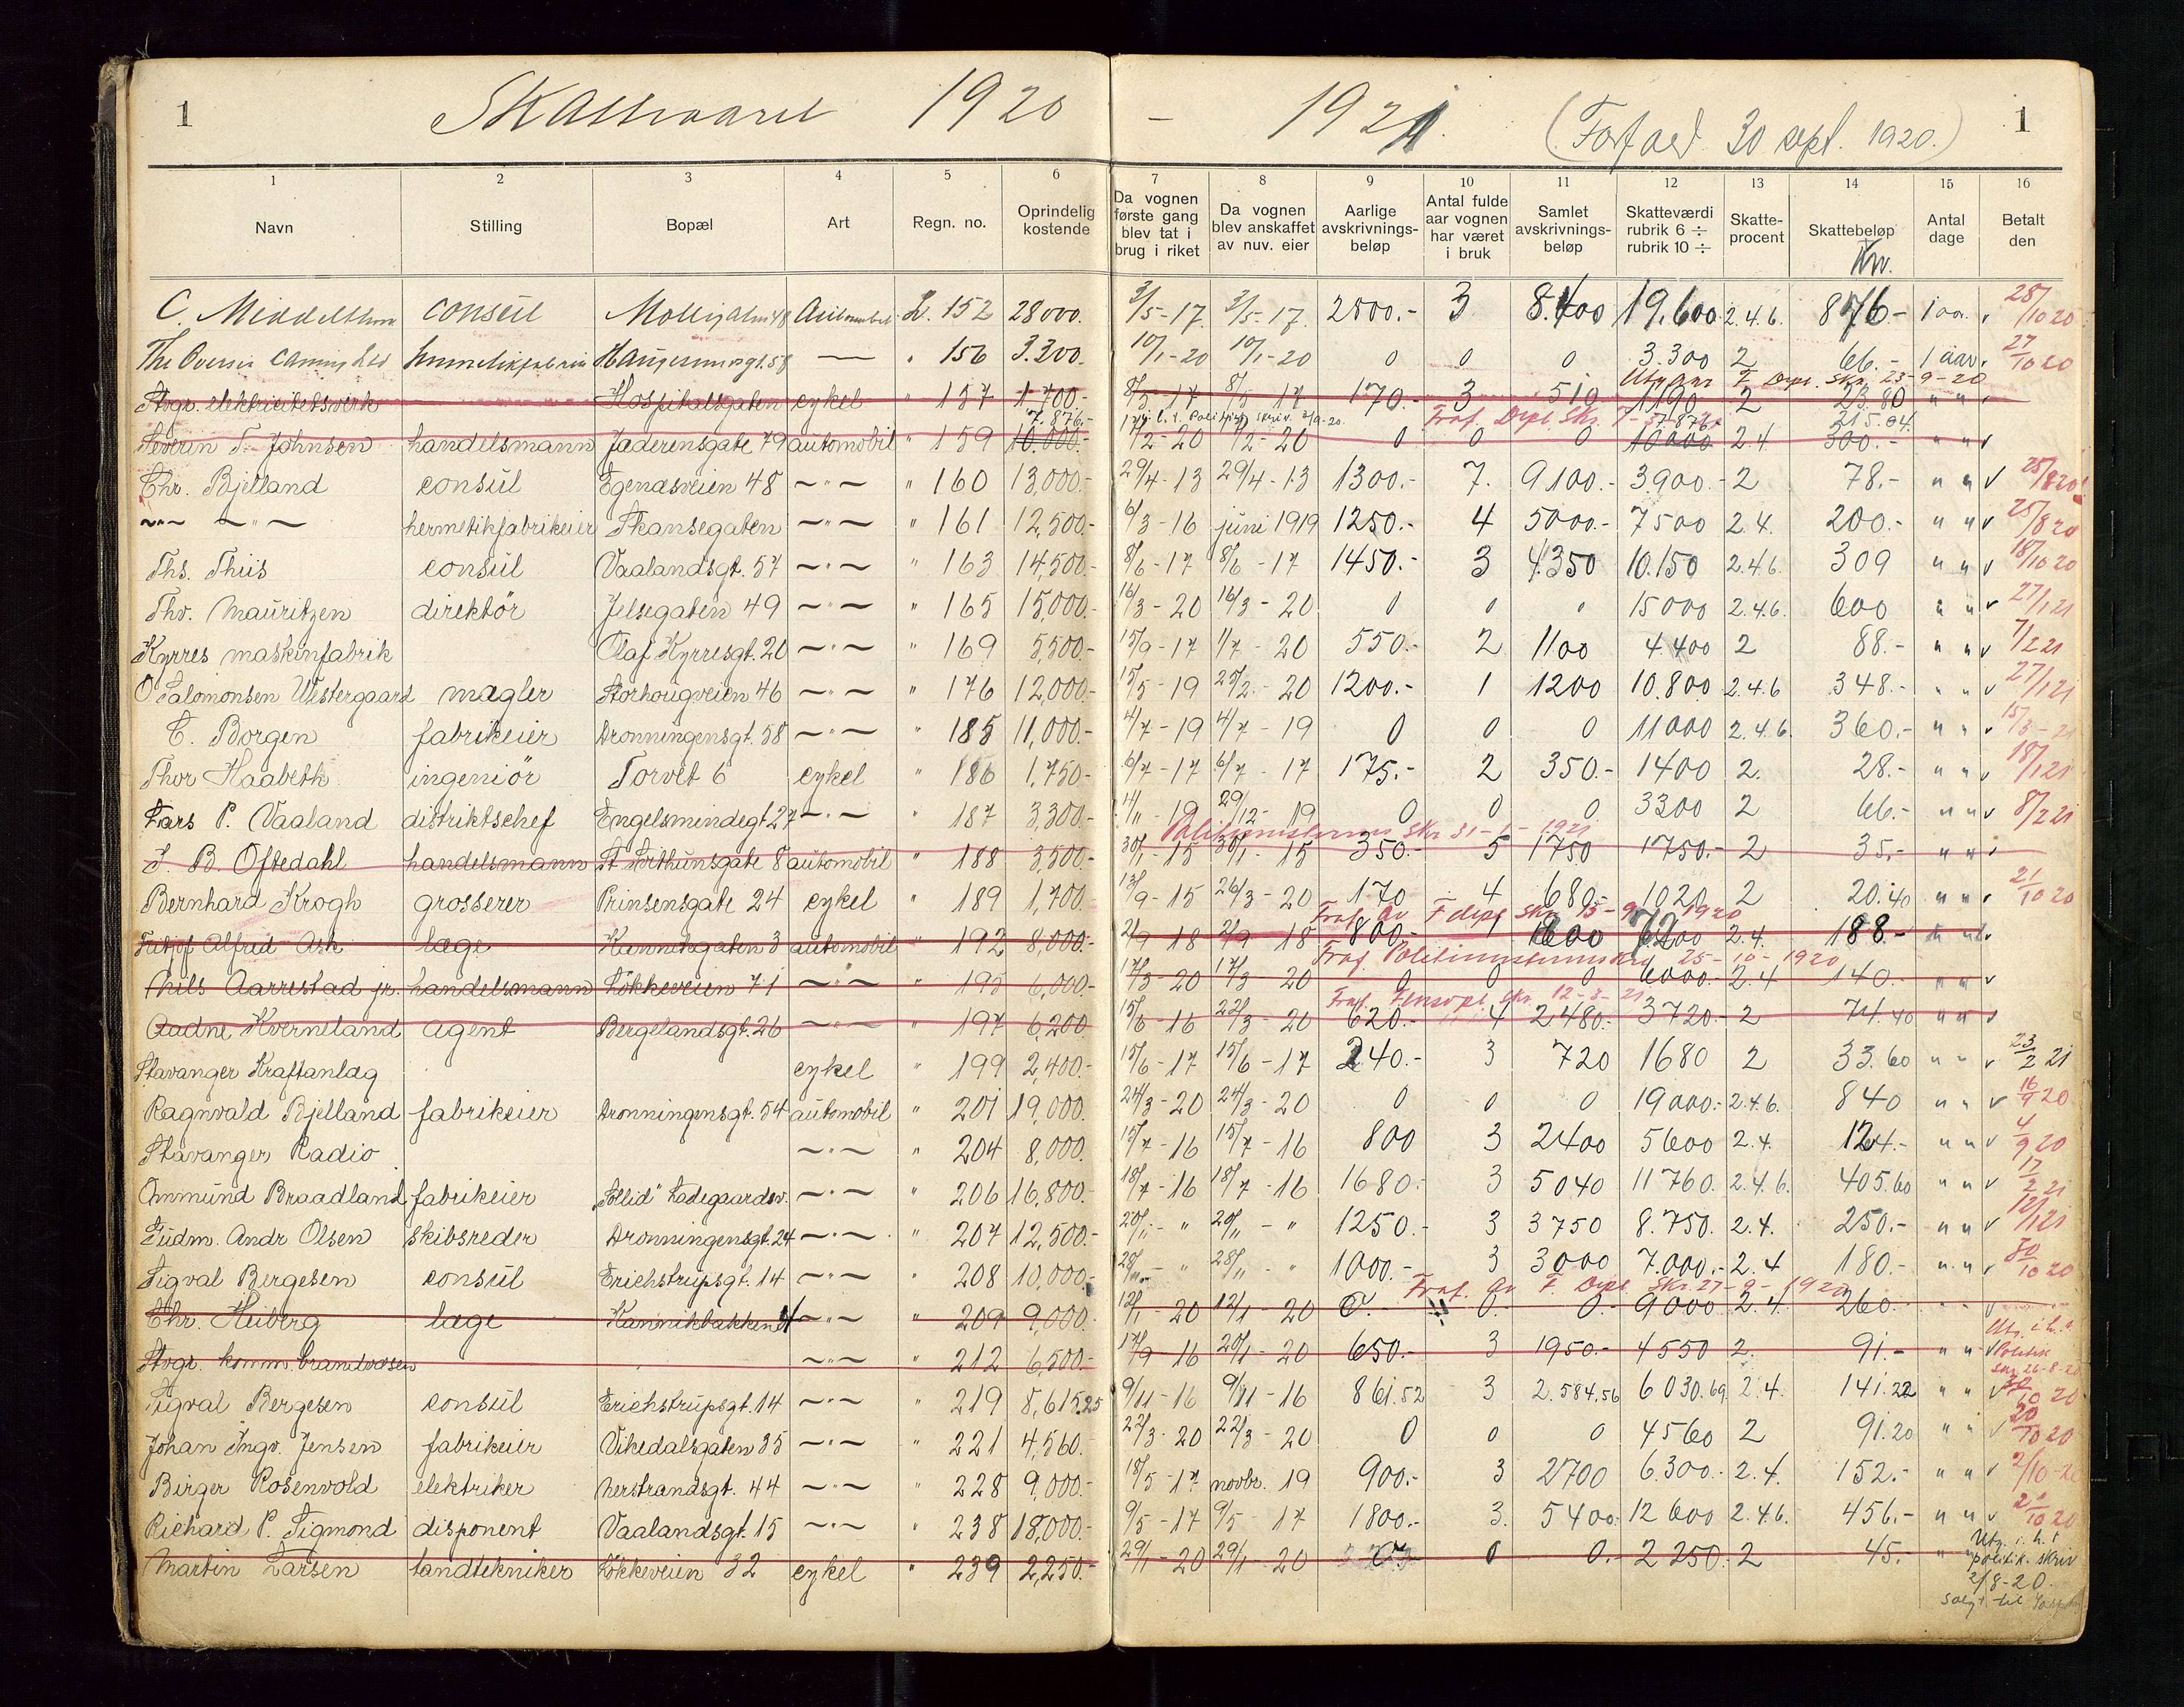 1 Skatteaaret 1920 – 1921. (Forfald 30 sept. 1920.) 1
1 2 3 4 5 6 7 8 9 10 11 12 13 14 15 16
Navn Stilling Bopæl Art Regn. no. Oprindelig kostende Da vognen første gang blev tat i brug i riket Da vognen blev anskaffet av nuv. eier Aarlige avskrivnings-beløp Antal fulde aar vognen har været i bruk Samlet avskrivnings-beløp Skatteværdi rubrik 6 ÷ rubrik 10 ÷ Skatte-procent Skattebeløp Antal dage Betalt den
Kr.
C. Middelthon consül Automobil L. 152 28000. 3/5-17. 3/5-17. 2800.- 3 8.400 19.600 2.4.6. 876- 1 aar. v 28/10 20
The Oversea Canning Ltd Haugesunnsgt. 58 — " 156 3.300. 10/1-20 10/1-20 0 0 0 3.300 2 66.- 1 aar. v 27/10 20
Utg. av F. Dept. Skr. 23-9-20
Stvgr. elektricitetsverk Hospitalsgaten cykel " 157 1700.- 8/5-17 8/5-17 170.- 3 510 1190 2 23.80 " " v
7.876.- Fraf. Dept. Skr. 7.876 215.04.
Severin T. Johnsen handelsmann Jæderensgate 79 automobil " 159 10.000.- 17/2-20 17/2-20 0 0 0 10000 2.4. 300.- " " v
Chr. Bjelland consül Egenæsveien 48 ~"~ " 160 13,000.- 29/4-13 29/4-13 1300.- 7. 9100.- 3.900.- 2 78.- " " v 25/8 20
~"~ ~"~ hermetikfabrikeier Skansegaten ~"~ " 161 12,500.- 6/3-16 juni 1919 1250.- 4 5000.- 7500 2.4. 200.- " " v 25/8 20
Ths. Thiis consül Vaalandsgt. 57 ~"~ " 163 14,500.- 8/6-17 8/6-17 1450.- 3 4.350 10.150 2.4.6. 309 " " v 18/10 20
Thv. Mauritzen direktör Jelsegaten 49 ~"~ " 165 15,000.- 16/3-20 16/3-20 0 0 0 15000 2.4.6. 600 " " v 27/1 21
Kyrres maskinfabrik Olaf Kyrresgt. 20 ~"~ " 169 5,500.- 15/9-17 1/7-20 550.- 2 1100 4.400 2 88.- " " v 7/2 21
O Salomonsen Westergaard mægler Storhougveien 46 ~"~ " 176 12,000.- 15/5-19 25/2-20 1200.- 1 1200 10.800 2.4.6 348.- " " v 27/1 21
C. Borgen fabrikeier Dronningensgt. 58 ~"~ " 185 11,000.- 4/7-19 4/7-19 0 0 0 11000 2.4.6. 360.- " " v 15/3-21
Thor Haabeth ingeniör Torvet 6 cykel " 186 1,750.- 6/7-17 6/7-17 175.- 2 350.- 1400 2. 28.- " " v 18/1 21
Lars P. Vaaland distriktschef Engelsmindegt 27 ~"~ " 187 3,300.- 4/11-19 29/12-19 0 0 0 3300 2 66.- " " v 8/2 21
Politimesterens Skr 31-1-1921
J. B. Oftedahl handelsmann St Svithunsgate 8 automobil " 188 3,500.- 30/1-15 30/1-15 350.- 5 1750 1750.- 2 35.- " " v
Bernhard Krogh grosserer Prinsensgate 24 cykel " 189 1,700.- 13/9-15 26/3-20 170 4 680.- 1020 2 20.40 " " v 21/10 20
Fraf. av F. dept skr 15-9-1920
Fritjof Alfred Ask læge Kannikgaten 3 automobil " 192 8,000.- 2/9 18 2/9 18 800.- 1 800 7200 2.4. 188.- " " v
Fraf. Politimesterens Skr. 25-10-1920
Nils Aarrestad jr. handelsmann Lökkeveien 71 ~"~ " 195 6,000.- 17/3-20 17/3 20 0 0 0 6000.- 2.4 140.- " " v
Fraf. Skr 12-3-21
Aadne Kverneland agent Bergelandsgt. 26 ~"~ " 197 6,200 15/6-16 22/3-20 620.- 4 2480.- 3720.- 2 74.40 " " v
Stavanger Kraftanlæg cykel " 199 2,400.- 15/6-17 15/6-17 240.- 3 720 1680 2 33.60 " " v 23/2 21
Ragnvald Bjelland fabrikeier Dronningensgt. 54 automobil " 201 19,000. 24/3-20 24/3-20 0 0 0 19000.- 2.4.6. 840 " " v 16/9 20
Stavanger Radio ~"~ " 204 8,000. 15/7-16 15/7-16 800 3 2400 5600 2.4. 124.- " " v 4/9 20
Ommund Braadland fabrikeier "Sollid" Ladegaardsv. ~"~ " 206 16,800.- 18/7-16 18/7-16 1680.- 3 5040 11760. 2.4.6. 405.60 " " v 17/2 21
Ludm. Andr Olsen skibsreder Dronningensgt. 24 ~"~ " 207 12,500.- 20/11-" 20/11-" 1250.- 3 3750 8.750. 2.4. 250.- " " v 12/1 21
Sigval Bergesen consül Erichstrupsgt. 14 ~"~ " 208 10,000.- 28/11-" 28/11-" 1000.- 3 3000 7.000.- 2.4 180.- " " v 30/10 20
Fraf. av F. Dept Skr. 27-9-1920
Chr. Heiberg læge Kannikbakken 4 ~"~ " 209 9,000.- 12/1-20 12/1-20 0.- 0.- 0.- 9000 2.4. 260.- " " v
Stvgr. komm. brandvæsen ~"~ " 212 6,500.- 17/9 16 20/1-20 650.- 3 1950.- 4550 2. 91.- " " v Utg. i h. t. Politik skr 26-8-20
Sigval Bergesen consül Erichstrupsgt. 14 ~"~ " 219 8,615.25 9/11-16 9/11-16 861.52 3 2.584.56 6030.69 2.4. 141.22 " " v 30/10 20
Johan Ingv. Jensen fabrikeier Vikedalsgaten 35 ~"~ " 221 4,560.- 22/3-20 22/3-20 0 0 0 4560 2 91.20 " " v 20/10 20
Birger Rosenvold elektriker Nerstrandsgt. 44 ~"~ " 228 9,000.- 18/5-17 novbr. 19 900.- 3 2700 6.300.- 2.4. 152.- " " v 2/10-20
Richard P. Sigmond disponent Vaalandsgt. 15 ~"~ " 238 18,000.- 9/5-17 9/5 17 1800.- 3. 5400.- 12600 2.4.6. 456.- " " v 10 20
Martin Larsen tandtekniker Lökkeveien 32 cykel " 239 2,250.- 29/1-20 29/1-20 0 0.- 2250. 2 45.- " " Utg. i. h. t. politik. skriv
2/8-20.
solgt til